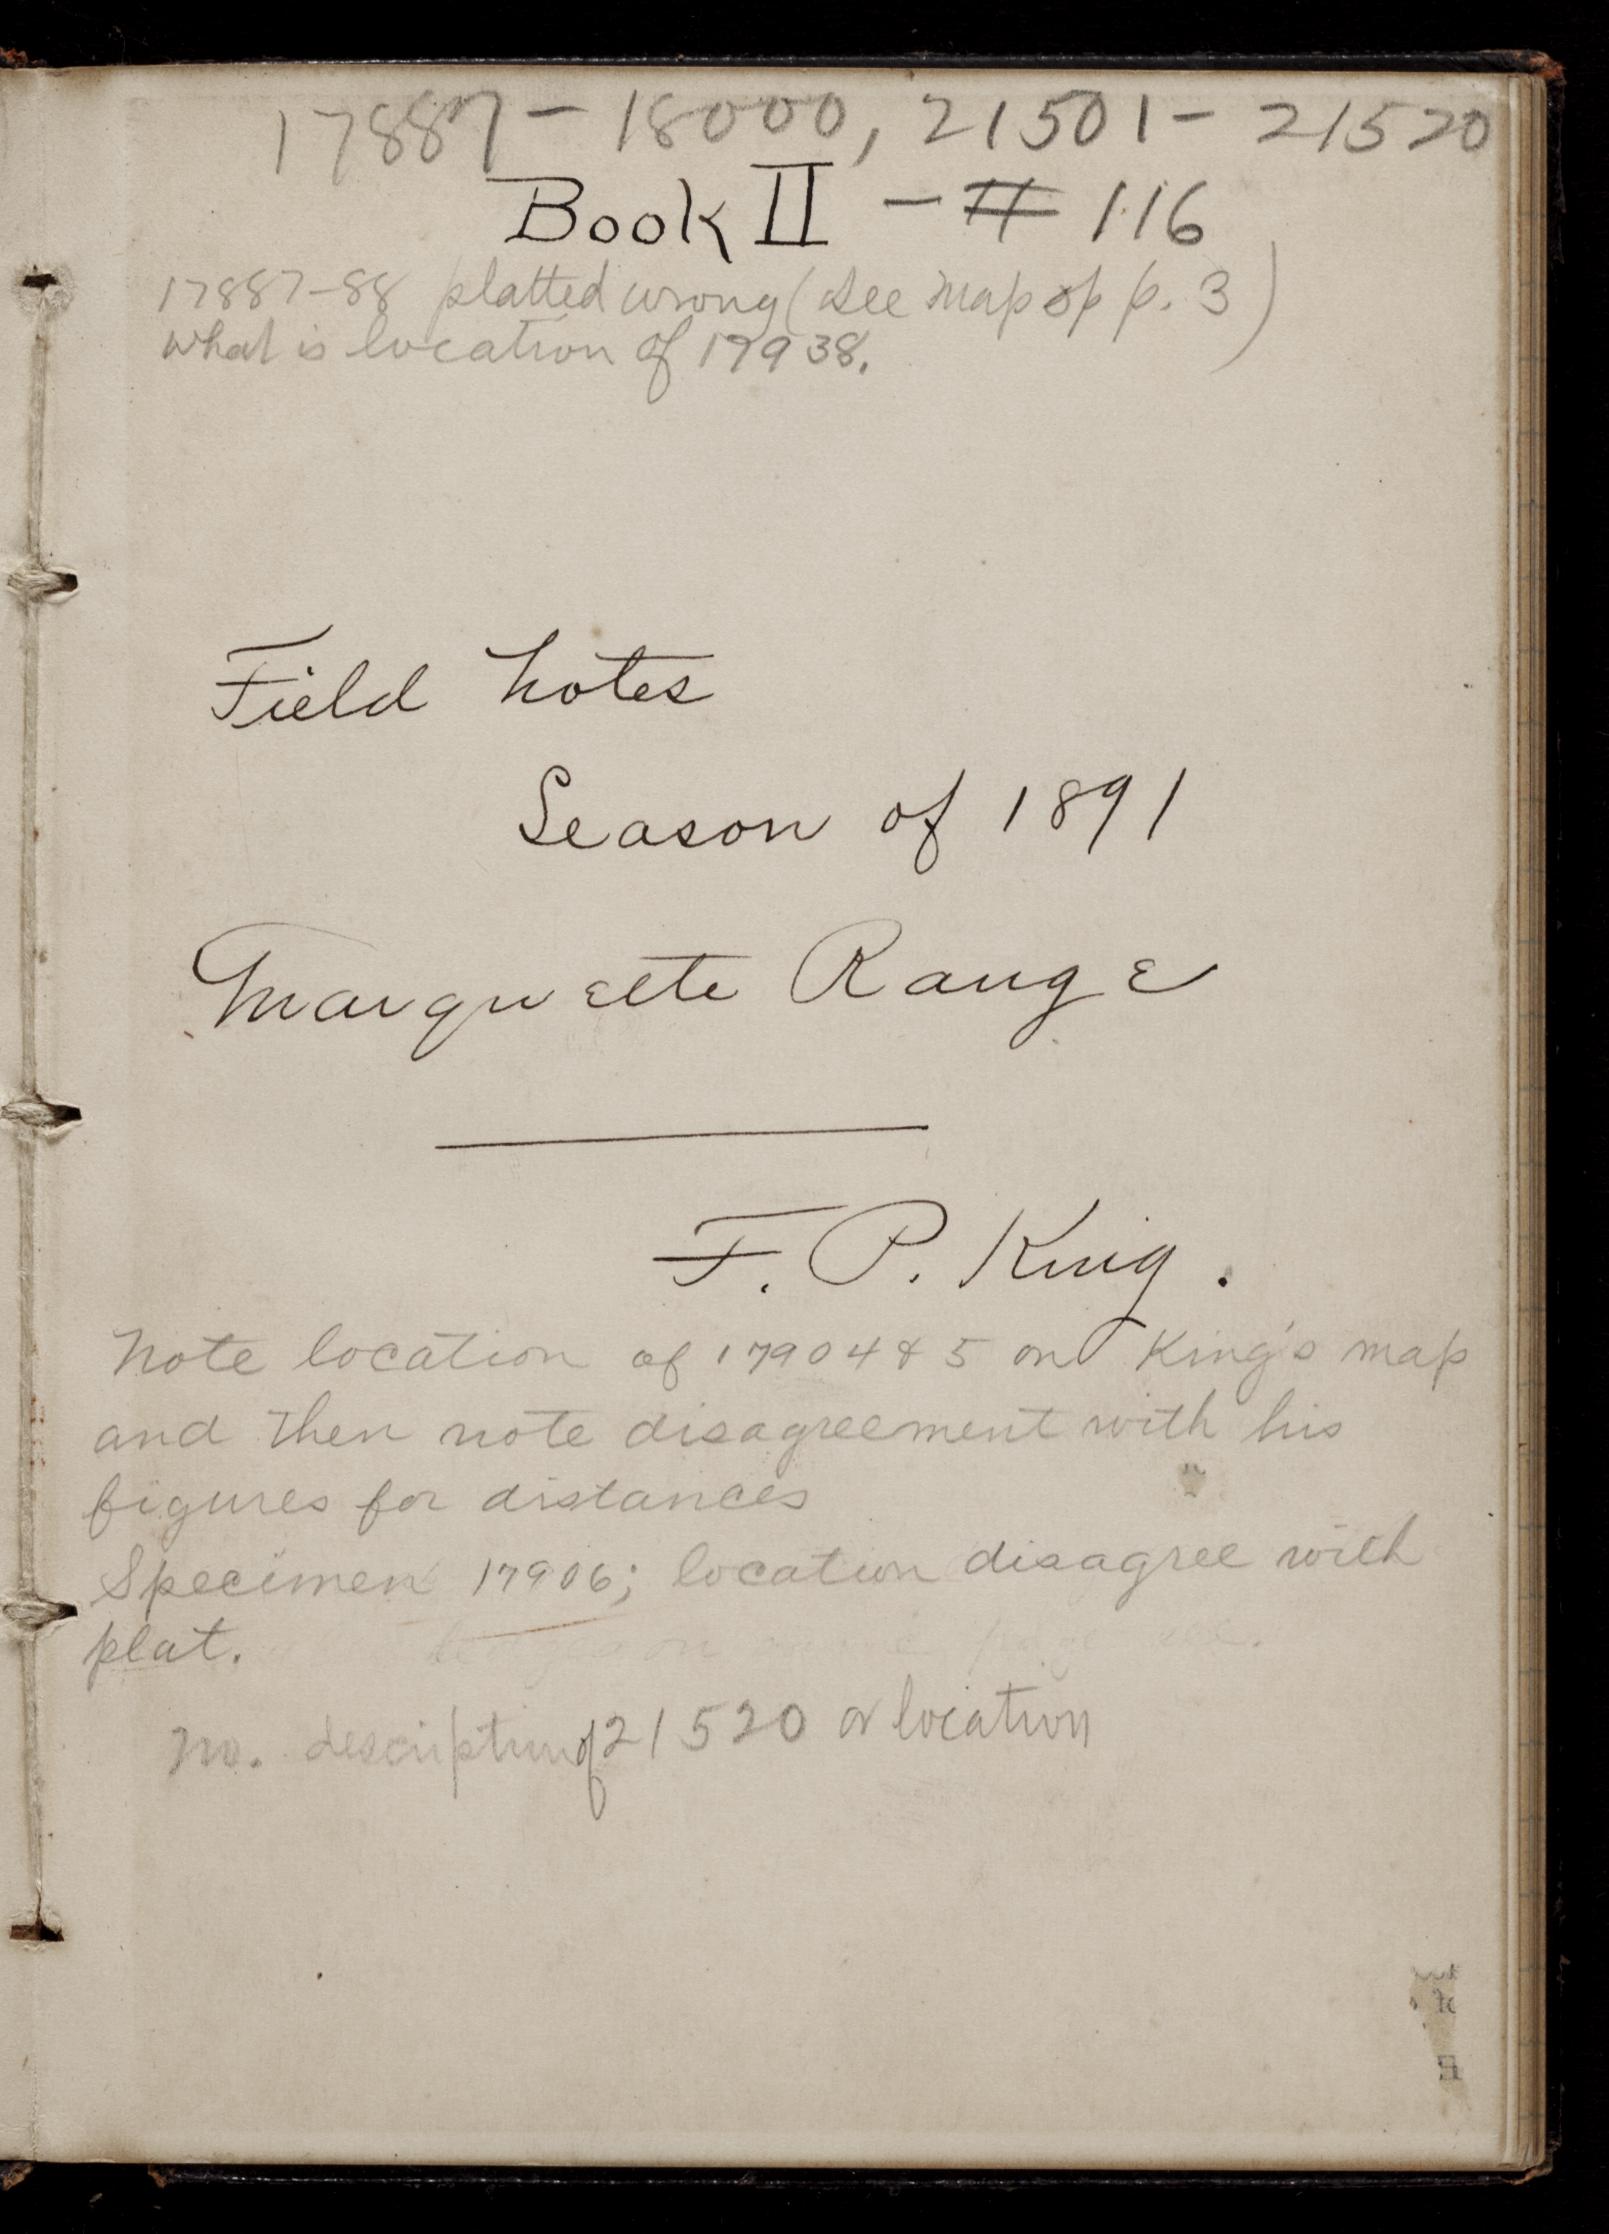 17887 - 18000, 21501 - 21520
Book II - # 116
17887-88 platted wrong (see map op p. 3)
what is location of 17938.
Field Notes
Season of 1891
Marquette Range
F. P. King.
Note location of 17904 & 5 on King's map
and then note disagreement with his
figures for distances
Specimen 17906; location disagree with
plat.
No. description of 21520 or location